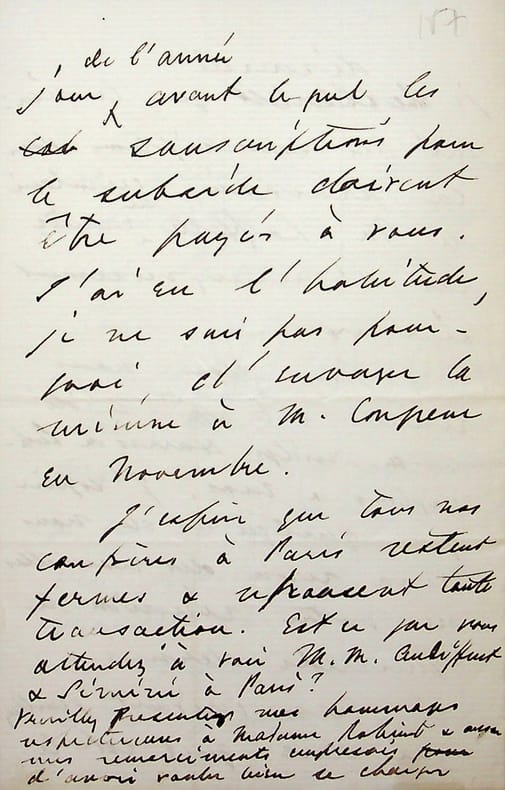 187
de l'année
jour avant lequel les
sousscriptions pour
le subside doivent
être payés à vous.
J'ai eu l'habitude,
je ne sais pas pour-
quoi d'envoyer la
mienne à M. Coupeur
en Novembre.
J'espère que tous nos
confrères à Paris restent
fermes & repoussent toute
transaction. Est ce que vous
attendez à voir M. M. Audiffret
& Séméné à Paris?
Veuillez presenter mes hommages
respectueux à Madame Robert & aussi
mes remerciments empressés pour
d'avoir voulu bien se charger